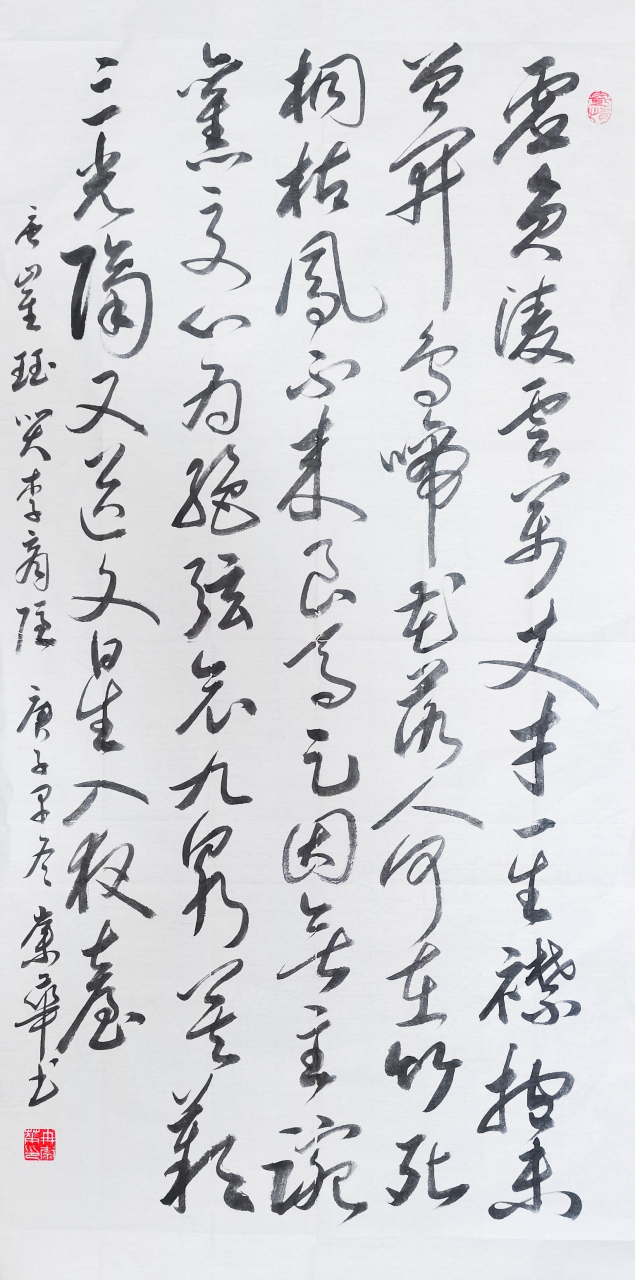 虛負淩雲萬丈才一生襟抱未
曾開鳥啼花落人何在竹死
桐枯鳳不来良馬足因無主踠
舊交心为絕弦哀九泉莫歎
三光隔又送文星入夜臺
唐崔珏哭李商隱 庚子早冬 華书